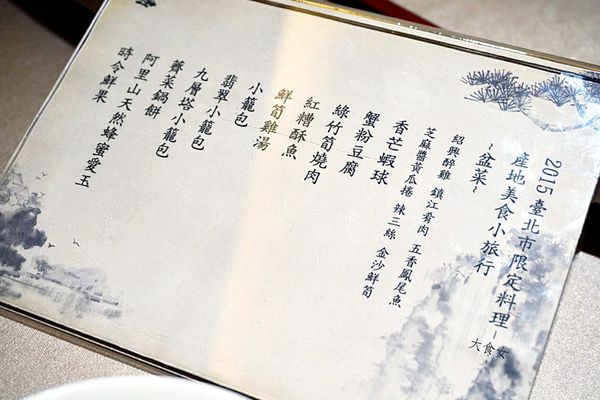 2015 臺北市限定料理－
大食女
產地美食小旅行
~盆菜~
紹興醉雞 鎮江肴肉 五香鳳尾魚
芝麻醬黃瓜捲 辣三絲 金沙鮮筍
香芒蝦球
蟹粉豆腐
綠竹筍燒肉
紅糟酥魚
鮮筍雞湯
小籠包
翡翠小籠包
九層塔小籠包
薺菜鍋餅
阿里山天然蜂蜜愛玉
時令鮮果